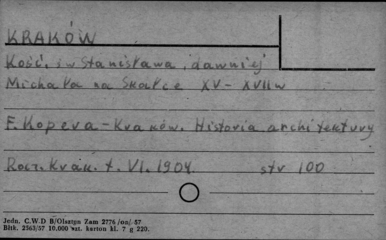 KRAKÓW
Kość. św Stanisława, dawniej
Michała na Skałce XV - XVII w
F. Kopera - Kraków. Historia architektury
Rocz. Krak. t. VI. 1904 str 100
Jedn. C.W.D B/Olsztyn Zam 2776 /on/ 57
Bltk. 2563/57 10.000 szt. karton kl. 7 g 220.